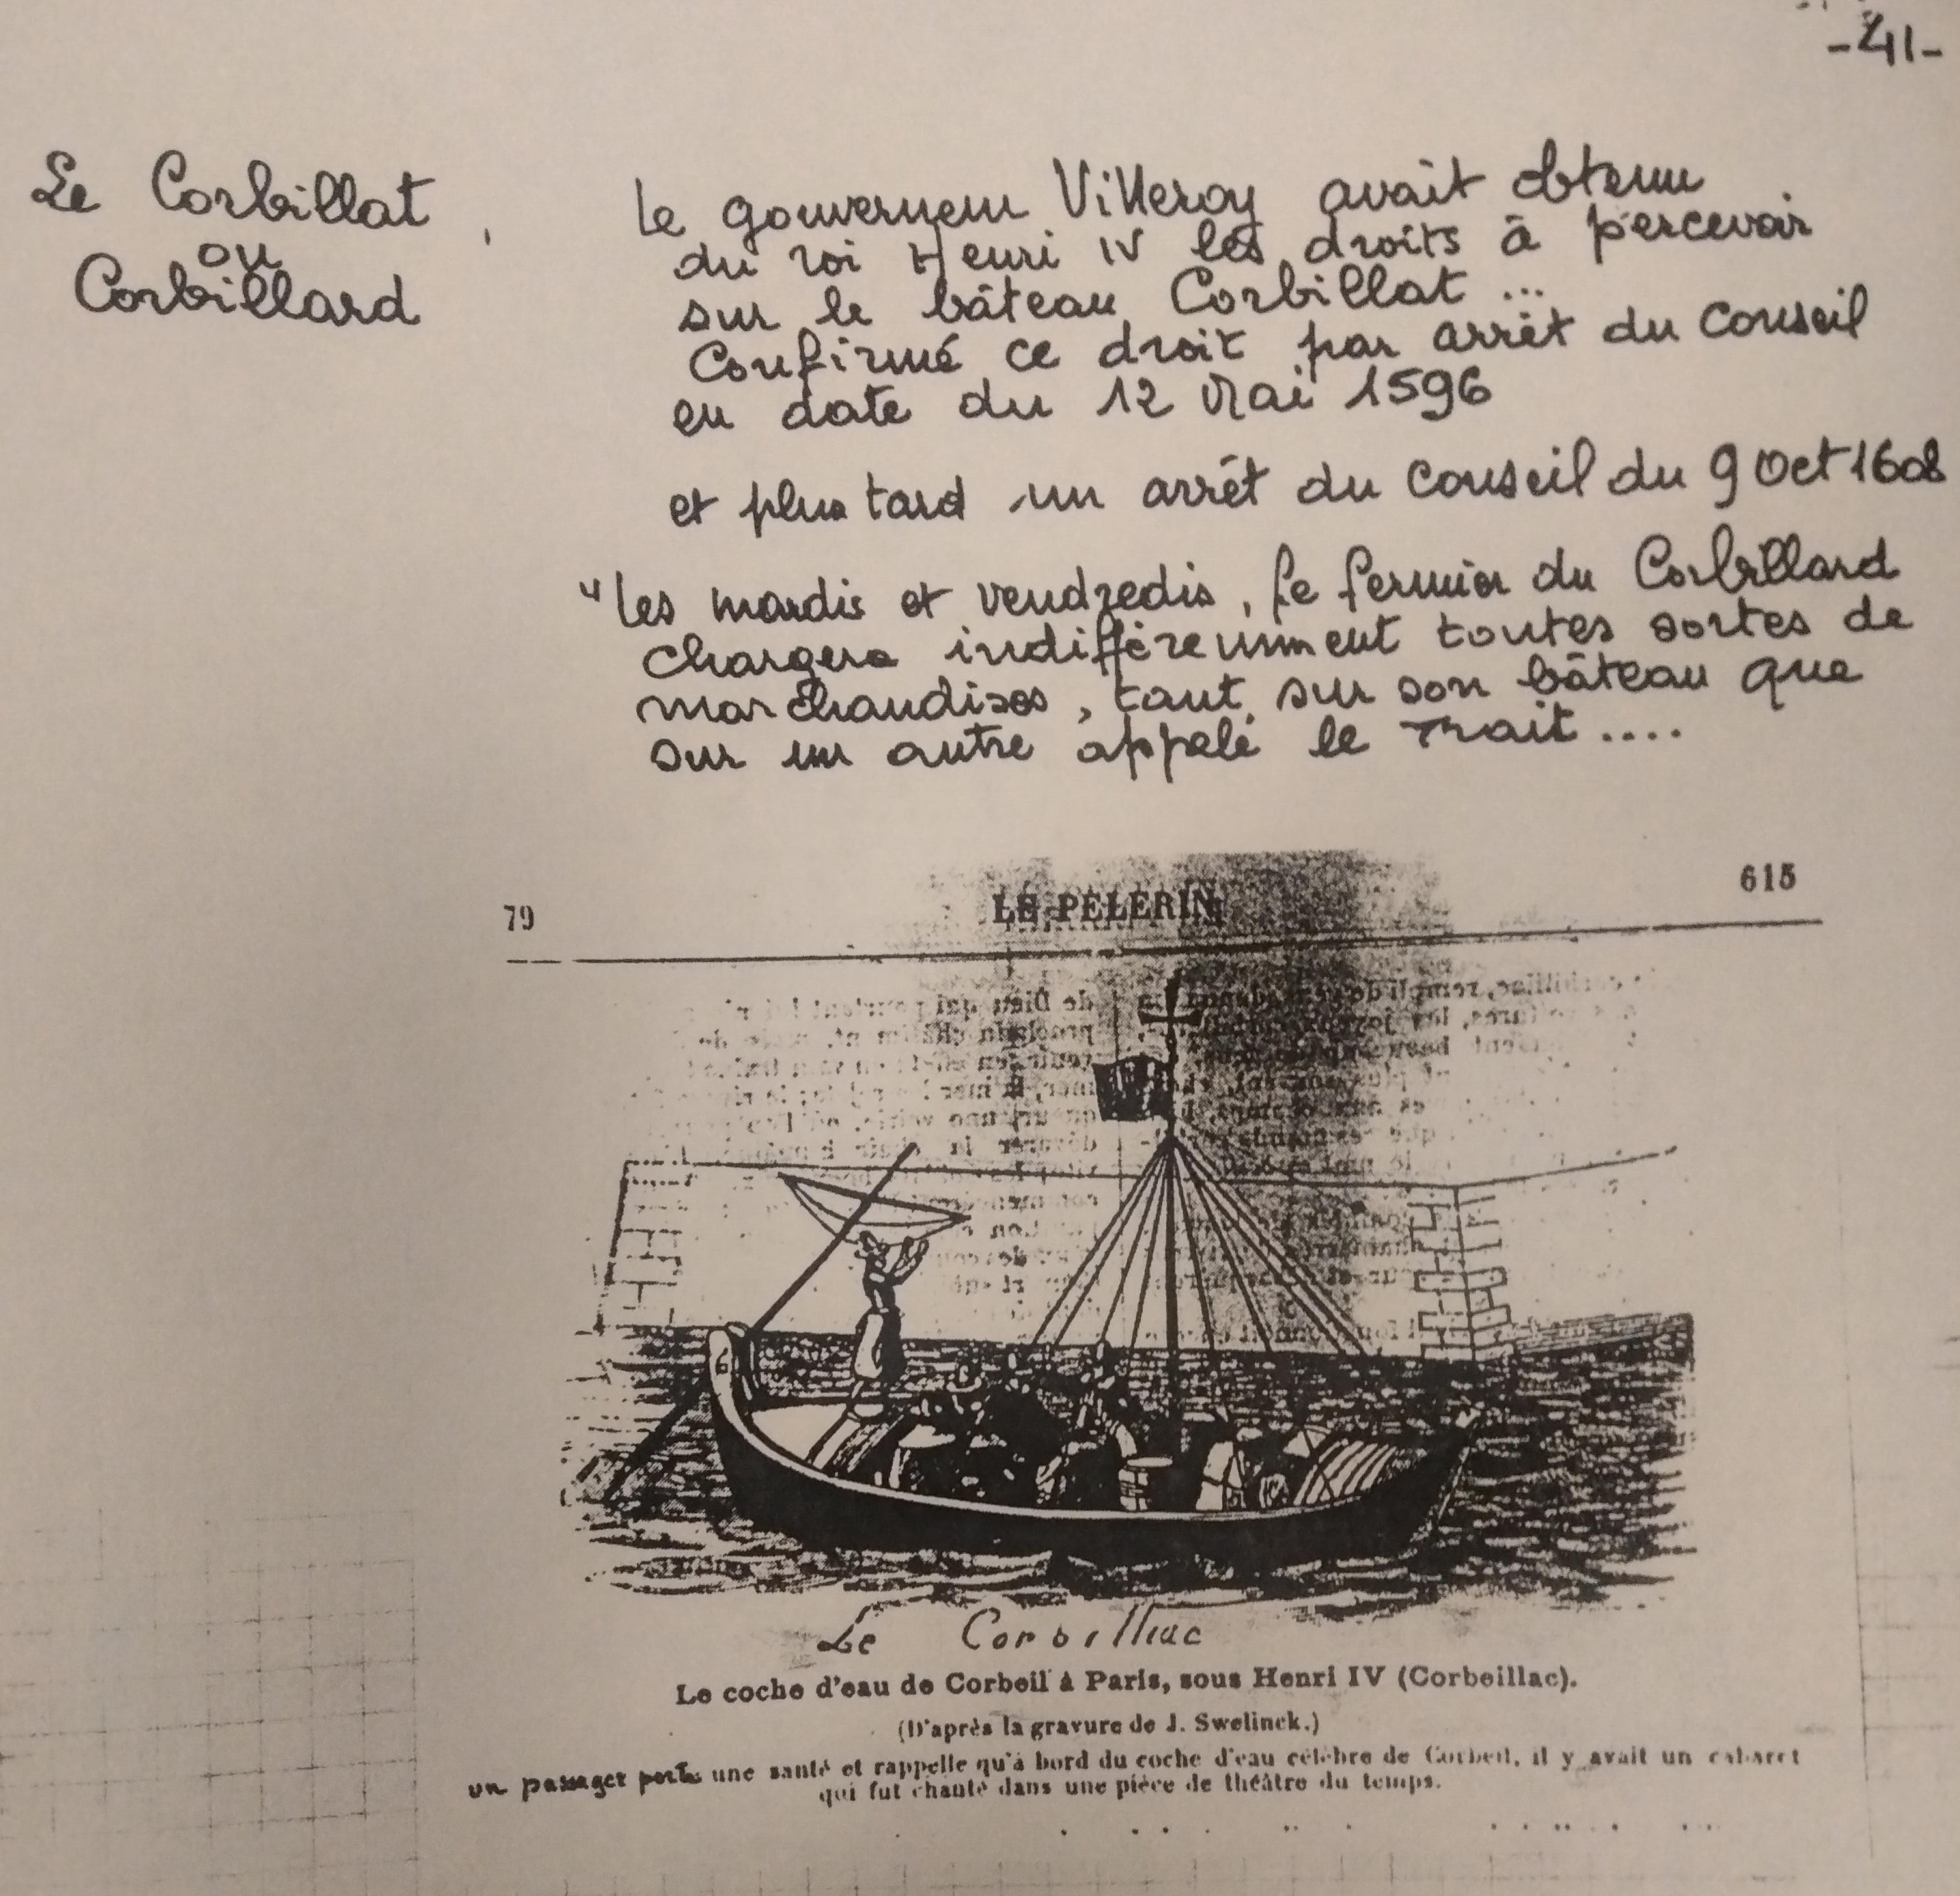 -41-
Le Corbillat
ou
Corbillard
Le gouverneur Villeroy avait obtenu
du roi Henri IV les droits à percevoir
sur le bâteau Corbillat ...
Confirmé ce droit par arrêt du conseil
en date du 12 Mai 1596
et plus tard un arrêt du conseil du 9 Oct 1608
"Les mardis et vendredis, le fermier du Corbillard
chargera indifféremment toutes sortes de
marchandises, tant sur son bâteau que
sur un autre appelé le Trait ....
79 LE PELERIN 615
Le Corbilliac
Le coche d'eau de Corbeil à Paris, sous Henri IV (Corbeillac).
(D'après la gravure de J. Swelinck.)
un passager porte une santé et rappelle qu'à bord du coche d'eau célèbre de Corbeil, il y avait un cabaret
qui fut chanté dans une pièce de théâtre du temps.